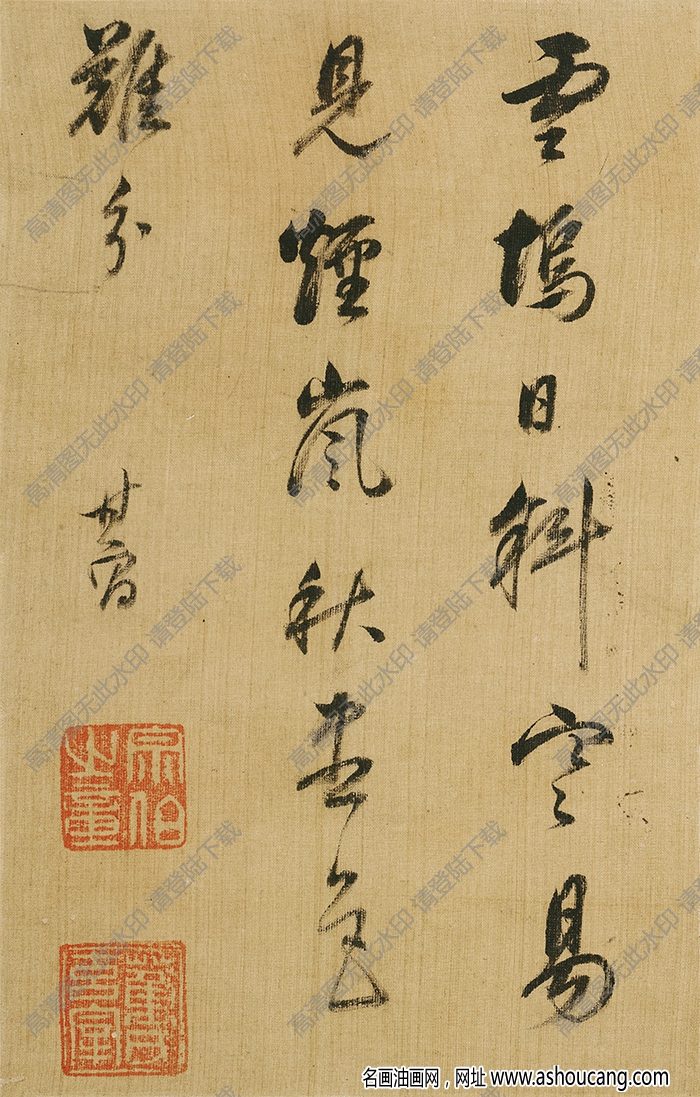 雲塢日斜空易
見煙嵐秋盡色
難分
其昌
高清图无此水印 请登陆下载
名画油画网，网址 www.ashoucang.com